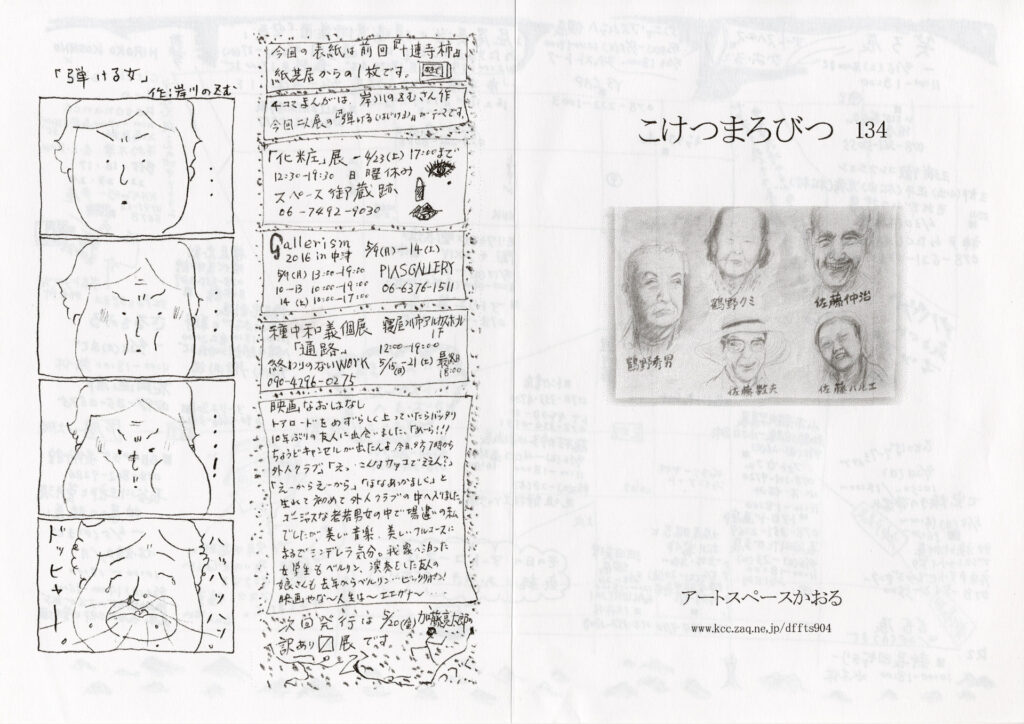 「弾ける女」
作:岩川のぞむ
・・・
・・・
・・・!
ハッハッハッハン
ドッピャー。
今回の表紙は前回『十連寺柿』
紙芝居からの1枚です。
4コマまんがは、岸川のぞむさん作
今回二人展の『弾ける(はじける)』がテーマです。
「化粧」展ー4/23(土)17:00まで
12:30-19:30 日曜休み
スペース御蔵跡
06-7492-9030
Gallerism
2016 in 中津 5/9(月)ー14(土)
5/9(月)13:00-19:00 PIASGALLERY
10-13 10:00-19:00 06-6376-1511
14(土)10:00-17:00
種中和義個展 寝屋川市アルカスホール
1F
「通路」 12:00-19:00
終わりのないWORK 5/15(日)-21(土) 最終日
18:00
090-4296-0275
映画なおはなし
トアロードをめずらしく上っていたらバッタリ
10年ぶりの友人に出会いました。「あーら!!!
ちょうどキャンセルが出たんよ 今日、夕方7時から
外人クラブ。」「えっ、こんなカッコでええん?」
「えーからえーから」「ななあつかましく」と
生れて初めて外人クラブの中へ入りました。
ゴージャスな老若男女の中で場違いの私
でしたが美しい音楽、美しいフルコースに
まるでシンデレラ気分。我家へ泊った
女学生もベルリン、演奏をした友人の
娘さんも去年からベルリン・ビックリポン!
映画やな〜人生は〜エエゲナ〜
次回発行は5/20(金)加藤亮太郎
訳あり展です。
こけつまろびつ 134
鶴野クミ
佐藤仲治
鶴野秀男
佐藤数夫
佐藤ハルエ
アートスペースかおる
www.kcc.zaq.ne.jp/dffts904